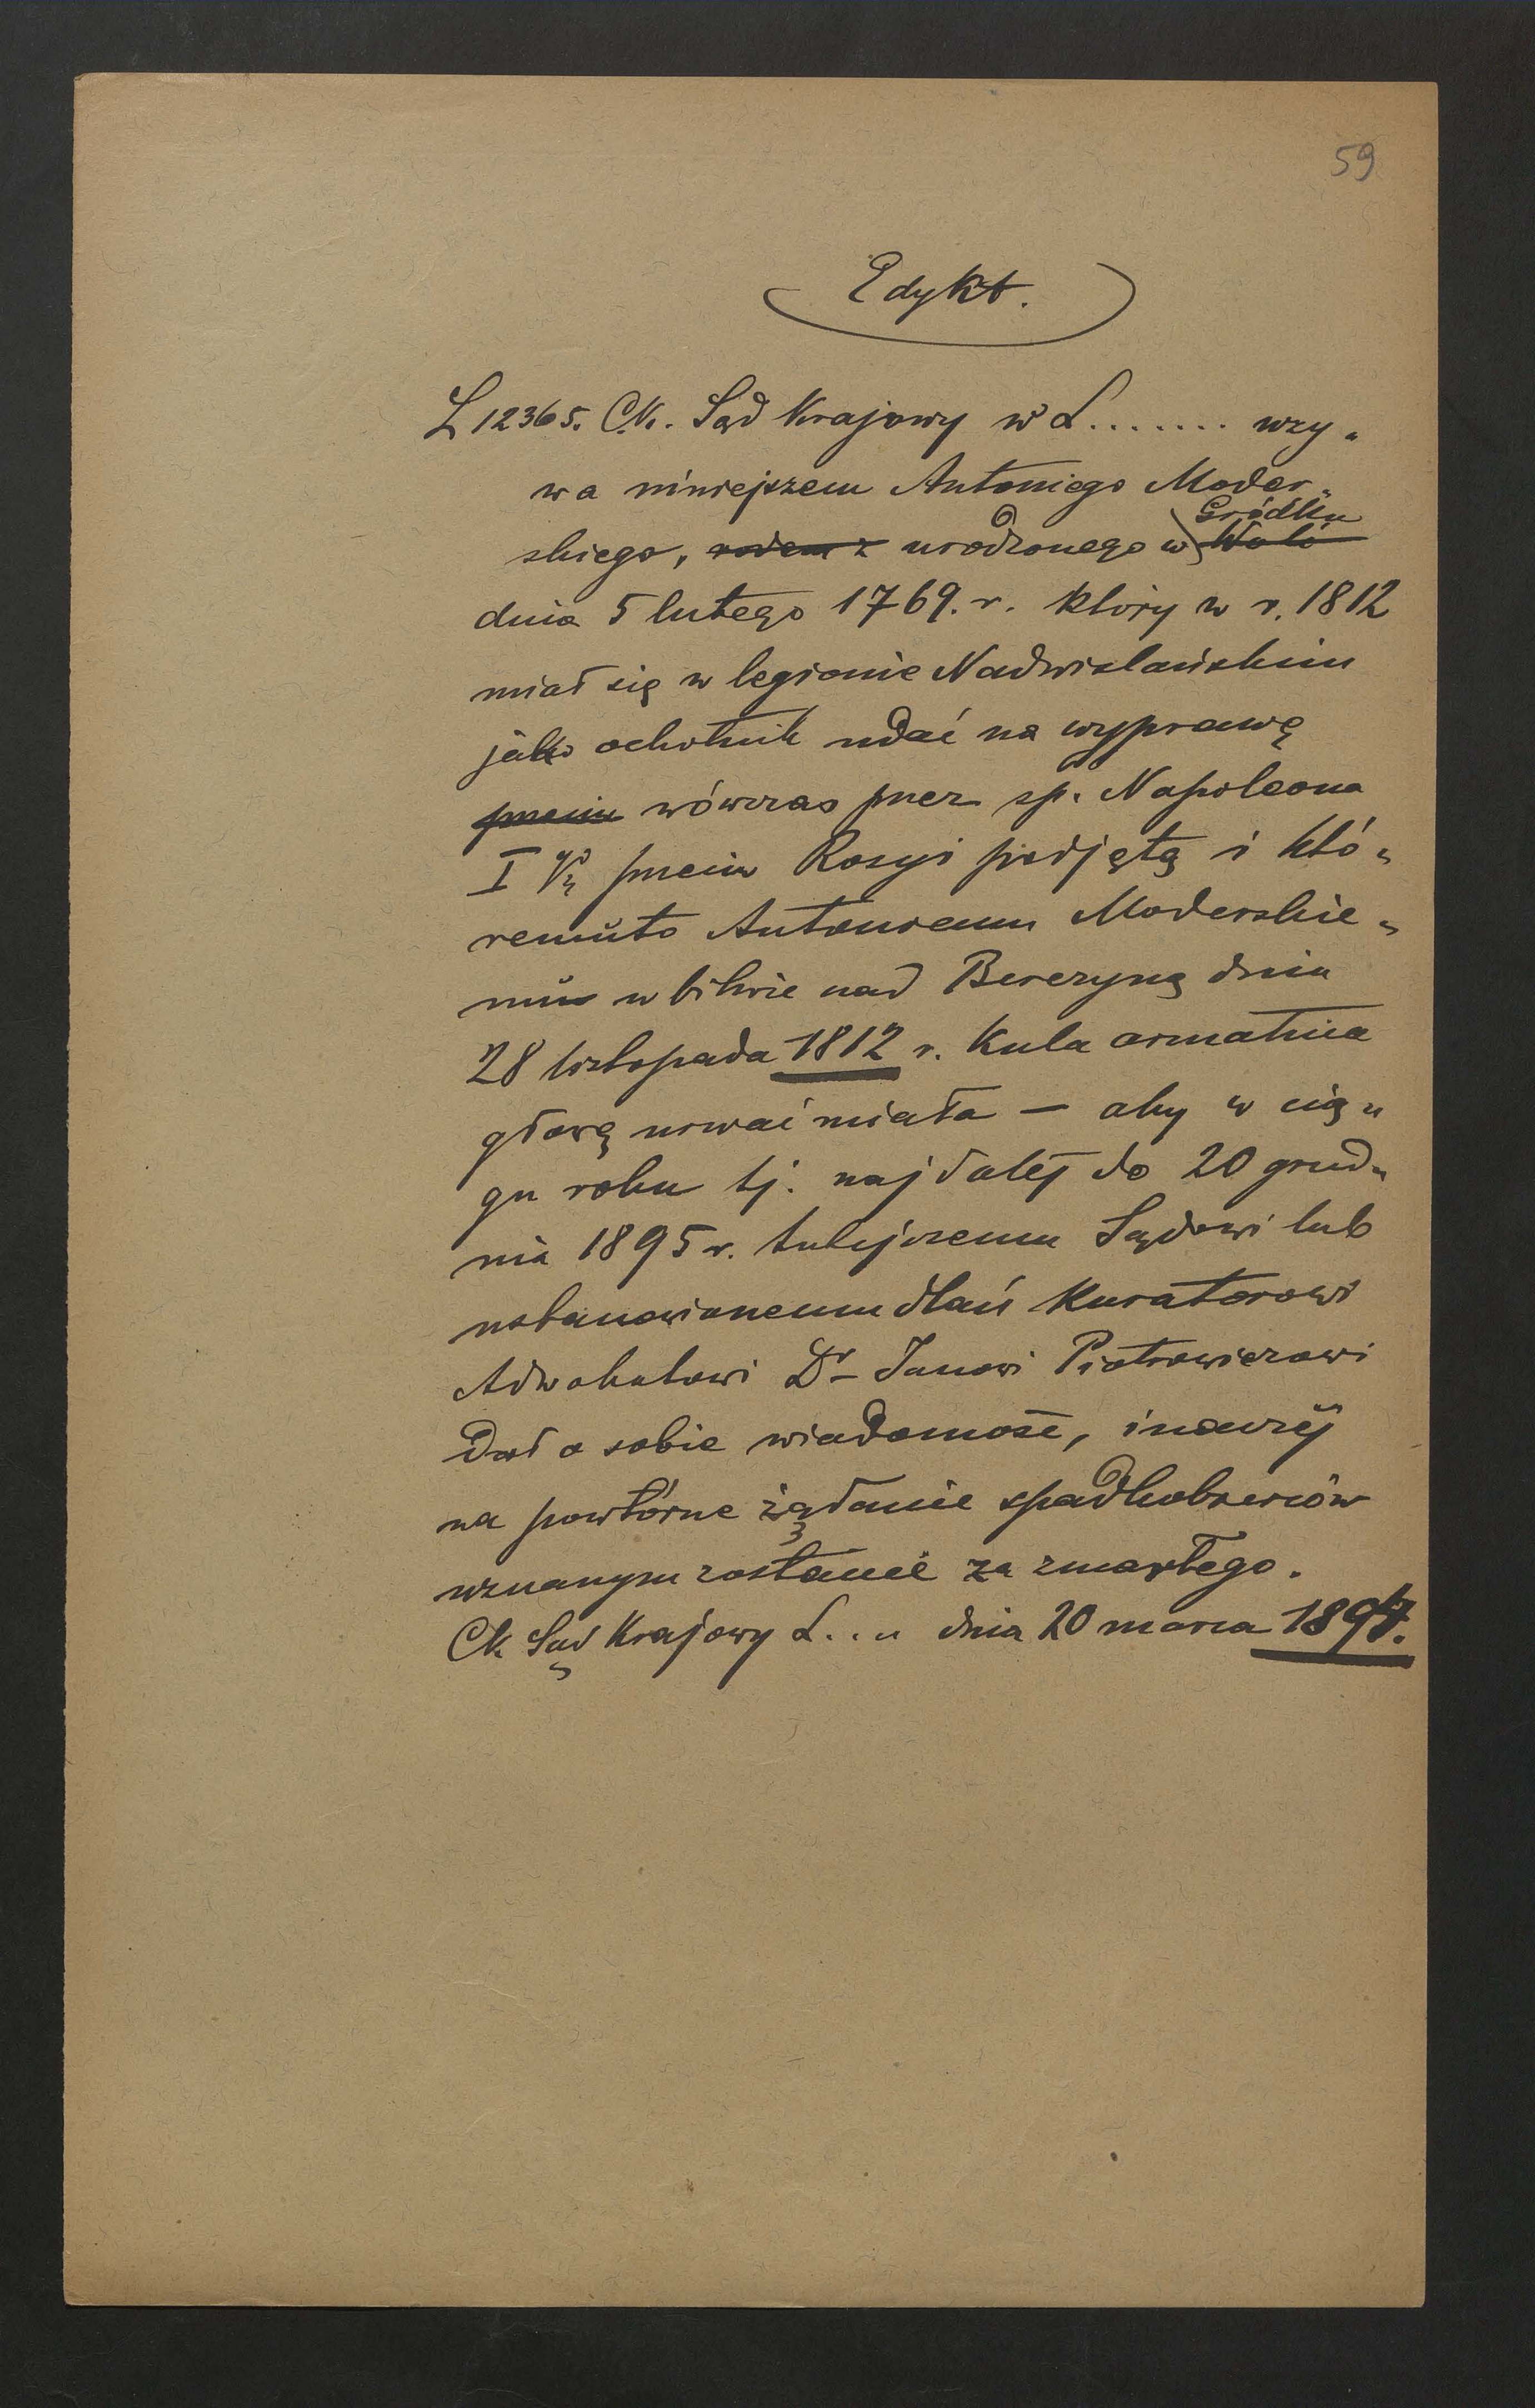 59
Edykt.
L 12365. C.K. Sąd Krajowy w L....... wzy„
wa niniejszem Antoniego Moder„
Gródku
skiego, rodem z urodzonego w Woli
dnia 5 lutego 1769. r. który w r. 1812
miał się w legionie Nadwislańskim
jako ochotnik udać na wyprawę
przeciw wówczas przez sp. Napoleona
I przeciw Rosyi podjętą i któ„
remuto Antoniemu Moderskie„
mu w bitwie nad Berezyną dnia
28 listopada 1812 r. Kula armatnia
głowę urwać miała — aby w cią„
gu roku tj. najdalej do 20 grud„
nia 1895 r. tutejszemu Sądowi lub
ustanowionemu dlań Kuratorowi
Adwokatowi Dr Janowi Piotrowiczowi
dał o sobie wiadomość, inaczej
na powtórne żądanie spadkobierców
uznanym zostanie za zmarłego.
Ck Sąd Krajowy L... dnia 20 marca